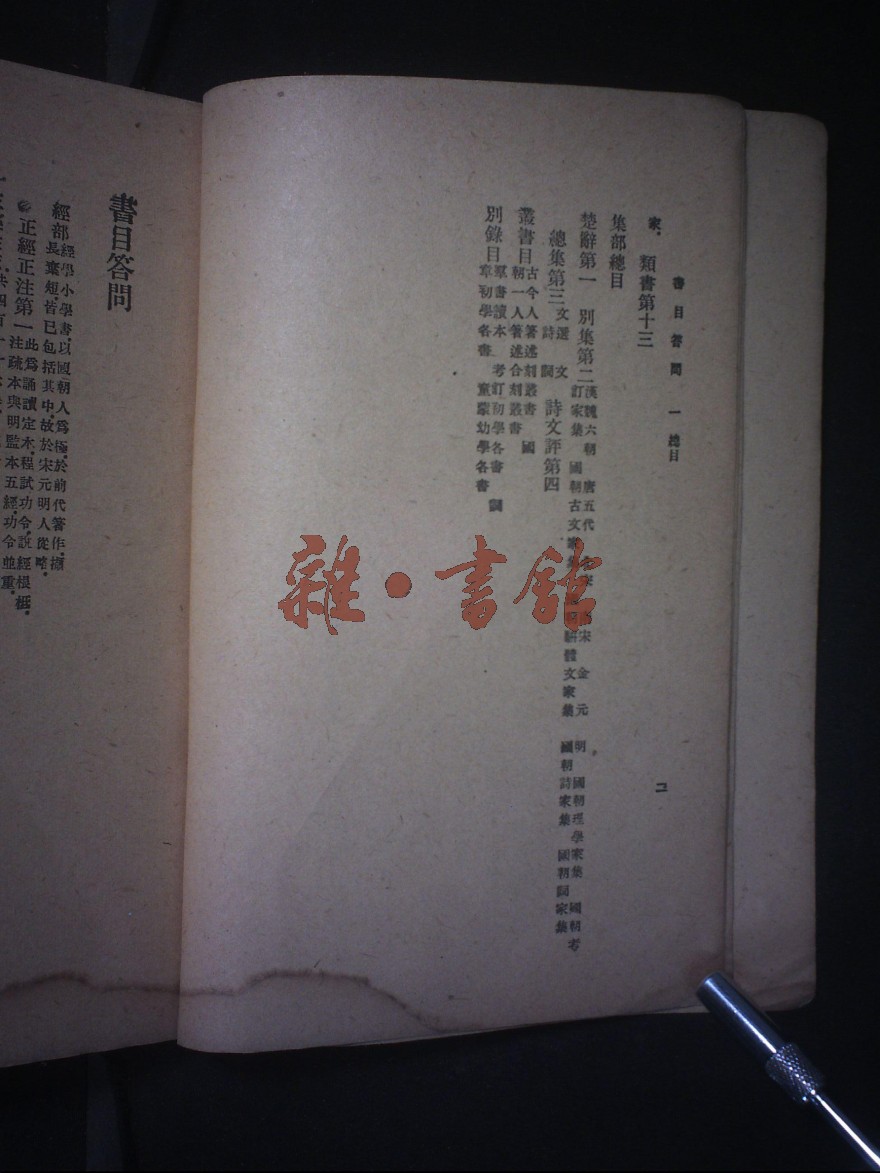 書目答問 一 總目
二
家. 類書第十三
集部總目
楚辭第一 別集第二漢魏六朝 唐五代 宋 金元 明 國朝理學家集 國朝考
訂家集 國朝古文家集 國朝駢體文家集 國朝詩家集 國朝詞家集
總集第三文選 文
詩 詞 詩文評第四
叢書目古今人著述合刻叢書 國
朝一人著述合刻叢書
別錄目羣書讀本 考訂初學各書 詞
章初學各書 童蒙幼學各書
雜·書館
書目答問
經部經學小學書,以國朝人爲極,於前代著作,擷
長棄短,皆已包括其中,故於宋元明人從略。
正經正注第一此爲誦讀定本,程試功令,說經根柢,
注疏本與明監本五經,功令並重。